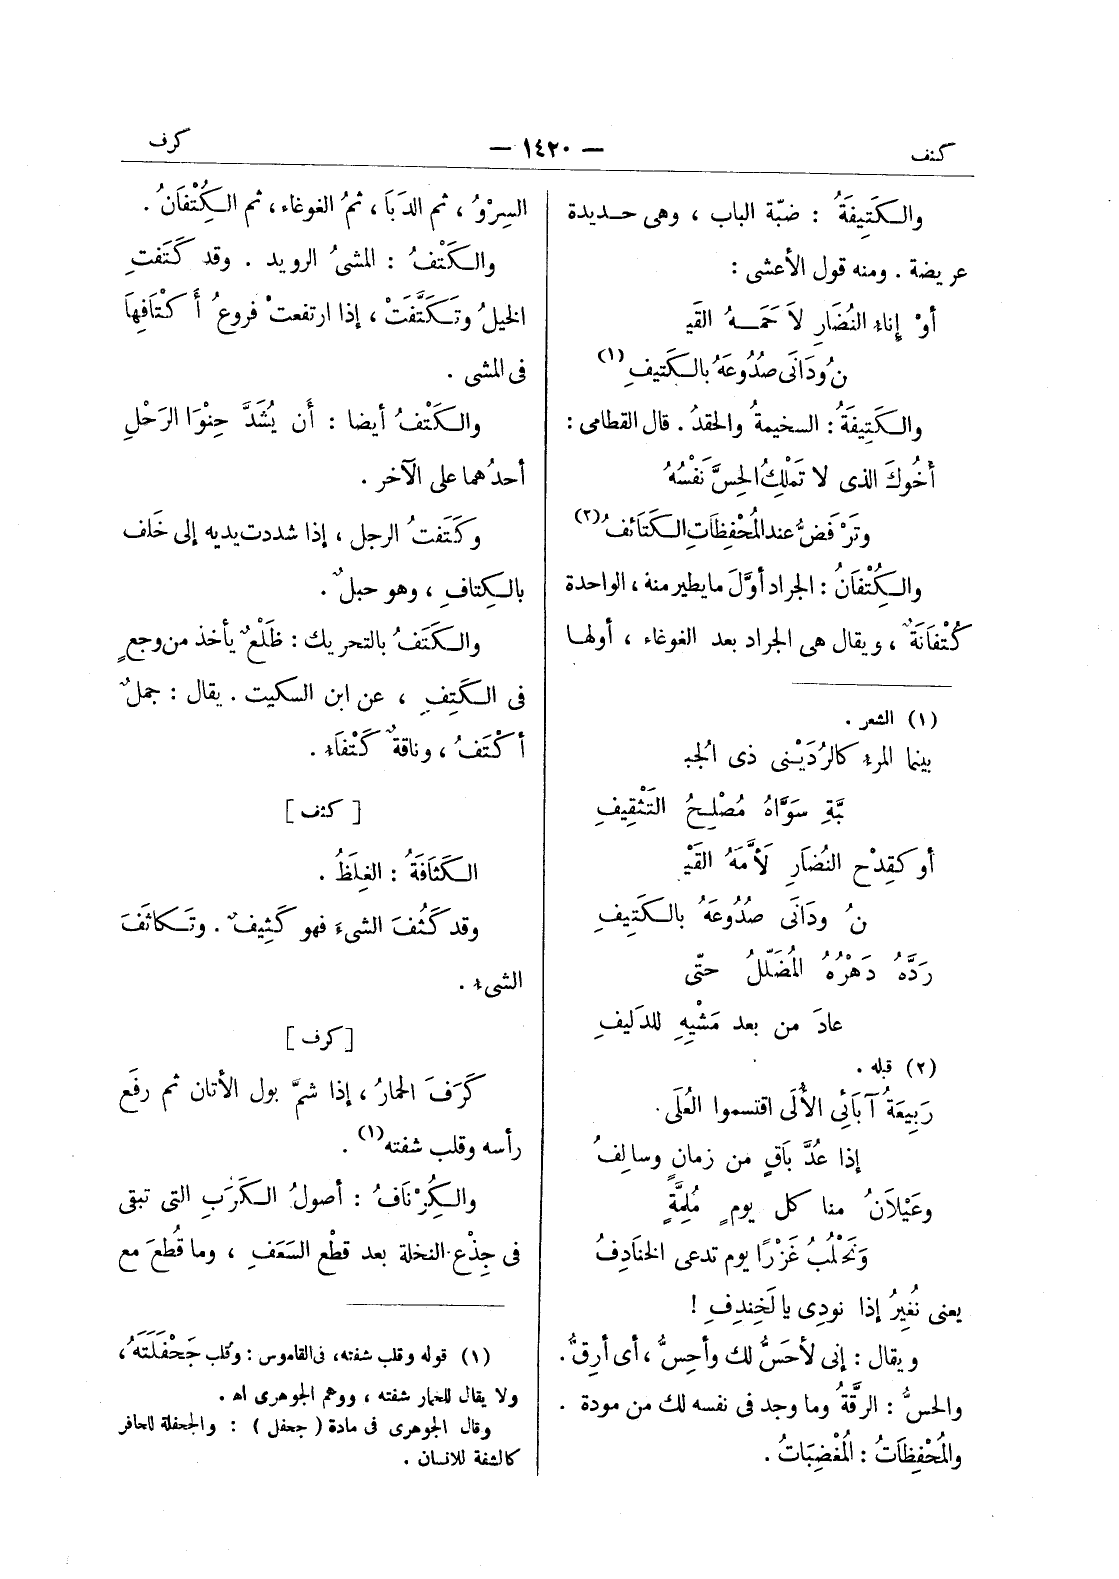 كتف
— ١٤٢٠ —
كرف
والكَتِيفَةُ : ضبّة الباب ، وهى حديدة
عريضة . ومنه قول الأعشى :
أوْ إناءِ النُضَارِ لاَحَمَهُ القَيْـ
ـنُ ودَانَى صُدُوعَهُ بالكَتيفِ (١)
والكَتِيفَةُ : السخيمةُ والحقدُ . قال القطامى :
أخُوكَ الذى لا تَملْكِ الحِسَّ نَفْسُهُ
وتَرْفَضُّ عند المُحْفِظَاتِ الكَتَائفُ (٢)
والكُتْفَانُ : الجراد أوَّلَ ما يطير منهُ ، الواحدة
كُتْفَانَةٌ ، ويقال هى الجراد بعد الغوغاء ، أولها
(١) الشعر .
بينما المرء كالرُدَيْنى ذى الجُبـ
ـبَّةِ سَوَّاهُ مُصْلِحُ التَثْقِيفِ
أو كقِدْح النُضَارِ لَأَمَّهُ القَيْـ
ـنُ ودَانَى صُدُوعَهُ بالكَتِيفِ
رَدَّهُ دَهْرُهُ المُضَلّلُ حتّى
عادَ من بعد مَشْيِهِ للدَليفِ
(٢) قبله .
رَبِيعَةُ آبَائِي الأُلَى اقتسموا العُلَى .
إذا عُدَّ بَاقٍ من زمانٍ وسالِفُ
وعَيْلاَنُ منا كل يومٍ مُلِمَّةٍ
وَنَحْلُبُ غَزْرًا يوم تدعى الخنَادِفُ
يعنى نُغِيرُ إذا نودِى يا لَخِندِفِ !
ويقال : إنى لأحَسُّ لك وأحِسُّ ، أى أرِقُّ .
والحسُّ : الرقّةُ وما وجد فى نفسه لك من مودة .
والمُحْفِظَاتُ : المُغْضِبَاتُ .
السِرْوُ ، ثم الدَبَا ، ثمُ الغوغاء ، ثم الكُتْفَانُ .
والكَتْفُ : المشىُ الرويد . وقد كَتَفتِ
الخيلُ وتَكَتَّفَتْ ، إذا ارتفعتْ فروعُ أكْتَافِهَا
فى المشى .
والكَتْفُ أيضا : أَن يُشَدَّ حِنْوَا الرَحْلِ
أحدُهما على الآخر .
وكَتَفتُ الرجل ، إذا شددت يديه إلى خَلف
بالكِتافِ ، وهو حبلٌ .
والكَتَفُ بالتحريك : ظَلْعٌ يأخذ من وجعٍ
فى الكَتِفِ ، عن ابن السكيت . يقال : جملٌ
أكْتَفُ ، وناقةٌ كَتْفَاء .
[ كثف ]
الكَثَافَةُ : الغِلَظُ .
وقد كَثُفَ الشىء فهو كَثِيفٌ . وتَكاثَفَ
الشىء .
[ كرف ]
كَرَفَ الحمارُ ، إذا شمَّ بول الأتان ثم رفَع
رأسه وقلب شفته (١) .
والكِرْنَافُ : أصولُ الكَرَبِ التى تبقى
فى جِذْعِ النخلة بعد قطْع السَعَفِ ، وما قُطعَ مع
(١) قوله وقلب شفته، فى القاموس : وقلب جَحْفَلَتَهُ ،
ولا يقال للحمار شفته ، ووهم الجوهرى اه .
وقال الجوهرى فى مادة ( جحفل ) : والجحفلة للحافر
كالشفة للانسان .